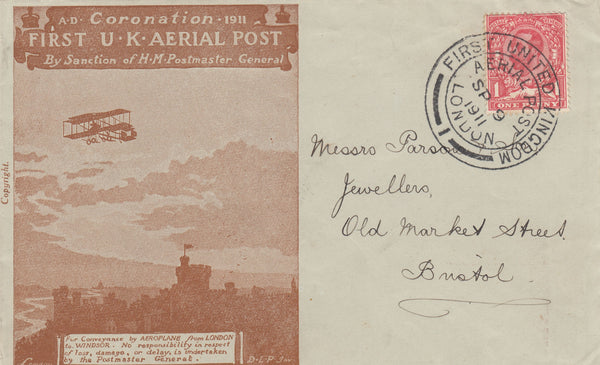 A·D· Coronation · 1911
FIRST U·K·AERIAL POST
By Sanction of H·M·Postmaster General
Copyright.
For Conveyance by AEROPLANE from LONDON
to WINDSOR. No responsibility in respect
of loss, damage, or delay, is undertaken
by the Postmaster General.
FIRST UNITED KINGDOM
AERIAL POST
SP 9
1911
LONDON
1
ONE
Messrs Parsons
Jewellers,
Old Market Street
Bristol.